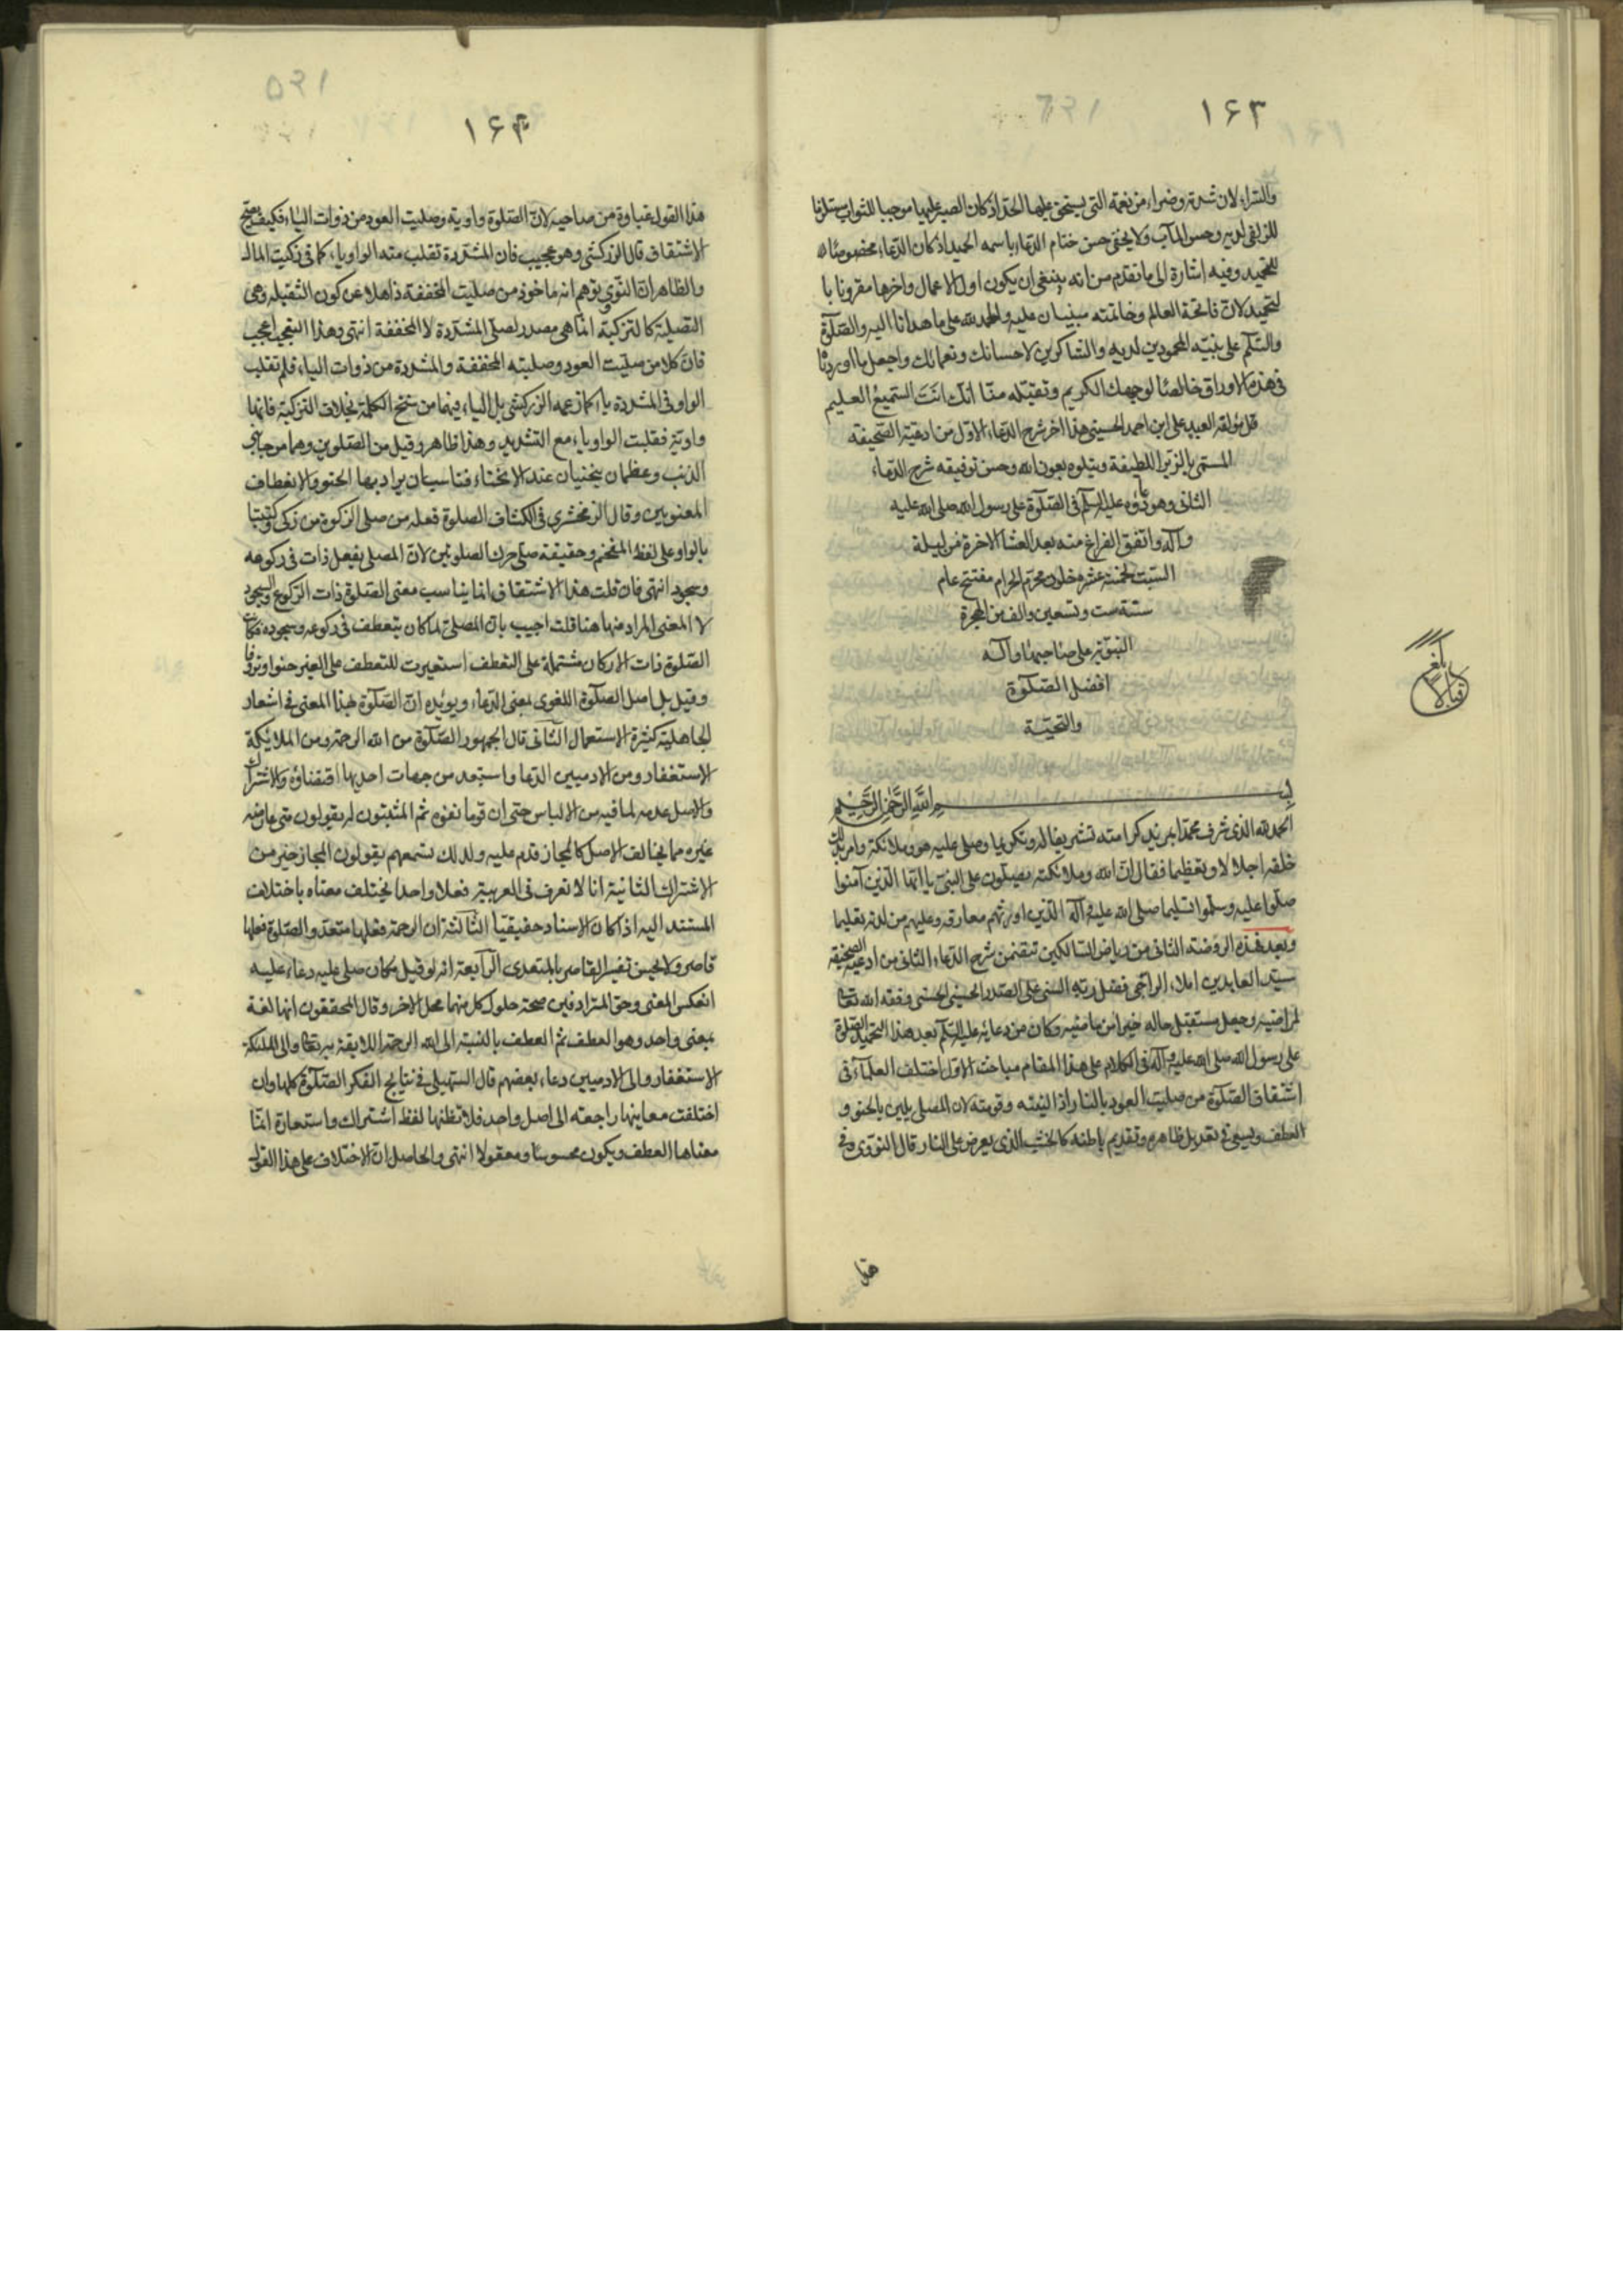 ١٦٣
والسراء لان شدته وضراءه من نعمه التي يستحق عليها الحمد اذ كان الصبر عليهما موجبا للثواب مستلزما
للزلفى لديه وحسن المآب ولا يخفى حسن ختام الدعاء باسمه الحميد اذ كان الدعاء مخصوصا
للتحميد وفيه اشارة الى ما تقدم من انه ينبغي ان يكون اول الاعمال واخرها مقرونا با
لتحميد لان فاتحة العالم وخاتمته مبنيان عليه والحمد لله على ما هدانا اليه والصلوة
والسلم على نبيه المحمود لديه والشاكرين لاحسانك ونعمائك واجعل ما اوردنا
في هذه الاوراق خالصا لوجهك الكريم وتقبله منا انك انت السميع العليم
قال مؤلفه العبد علي ابن احمد الحسيني هذا اخر شرح الدعاء الاول من ادعية الصحيفة
المسمى بالزبر اللطيفة ويتلوه بعون الله وحسن توفيقه شرح الدعاء
الثاني وهو دعاؤه عليه السلم في الصلوة على رسول الله صلى الله عليه
وآله واتفق الفراغ منه بعد العشاء الاخرة من ليلة
السبت لخمسة عشر خلون من محرم الحرام مفتتح عام
ستة وست وتسعين والف من الهجرة
النبوية على صاحبها وآله
افضل الصلوة
والتحية
بلغ
قبالا
بسم الله الرحمن الرحيم
الحمد لله الذي شرف محمدا بمزيد كرامته تشريفا له وتكريما وصلى عليه هو وملائكته وامر بذلك
خلقه اجلالا وتعظيما فقال ان الله وملائكته يصلون على النبي يا ايها الذين آمنوا
صلوا عليه وسلموا تسليما صلى الله عليه وآله الذين اورثهم معارفه وعليهم من لدنه تعليما
وبعد فهذه الروضة الثاني من رياض السالكين تتضمن شرح الدعاء الثاني من ادعية الصحيفة
سيد العابدين املاء الراجي فضل ربه السني علي الصدر الحسيني الحسني وفقه الله تعالى
لمراضيه وجعل مستقبل حاله خيرا من ماضيه وكان من دعائه عليه السلم بعد هذا التحميد الصلوة
على رسول الله صلى الله عليه وآله في الكلام على هذا المقام مباحث الاول اختلف العلماء في
اشتقاق الصلوة من صليت العود بالنار اذا لينته وقومته لان المصلي يلين بالحنو و
العطف ويسعى في تعديل ظاهره وتقديم باطنه كالخشب الذي يعرض على النار قال النووي وفي
هذا
١٦٤
هذا القول غباوة من صاحبه لان الصلوة واوية وصليت العود من ذوات الياء فكيف يصح
الاشتقاق قال الزركشي وهو عجيب فان المشددة تقلب منه الواو ياء كما في زكيت المال
والظاهر ان النووي توهم انه ماخوذ من صليت المخففة ذاهلا عن كون الثقيله وهي
التصلية كالتزكية انما هي مصدر لصلى المشددة لا المخففة انتهى وهذا التعجب اعجب
فان كلا من صليت العود وصليته المخففة والمشددة من ذوات الياء فلم تقلب
الواو في المشددة ياء كما زعمه الزركشي بل الياء فيهما من سنخ الكلمة بخلاف التزكية فانها
واوية فقلبت الواو ياء مع التشديد وهذا ظاهر وقيل من الصلوين وهما من جانبي
الذنب وعظمان ينحنيان عند الانحناء فتناسب ان يراد بهما الحنو والانعطاف
المعنويين وقال الزمخشري في الكشاف الصلوة فعلة من صلى كالزكوة من زكى وكتبتها
بالواو على لفظ المفخم وحقيقة صلى حرك الصلوين لان المصلي يفعل ذات في ركوعه
وسجوده انتهى فان قلت هذا الاشتقاق انما يناسب معنى الصلوة ذات الركوع والسجود
لا المعنى المراد منها هنا قلت اجيب بان المصلي لما كان يتعطف في ركوعه وسجوده فكانت
الصلوة ذات الاركان مشتملة على التعطف استعيرت للتعطف على الغير حنوا وترؤفا
وقيل بل اصل الصلوة اللغوي بمعنى الدعاء ويؤيده ان الصلوة بهذا المعنى في اشعار
الجاهلية كثيرة الاستعمال الثاني قال الجمهور الصلوة من الله الرحمة ومن الملائكة
الاستغفار ومن الادميين الدعا واستبعد من جهات احديها اقتضاؤه والاشتراك
والاصل عدمه لما فيه من الالباس حتى ان قوما نفوه ثم المثبتون له يقولون متى عارضه
غيره مما يخالف الاصل كالمجاز قدم عليه ولذلك تسمعهم يقولون المجاز خير من
الاشتراك الثانية انا لا نعرف في العربية فعلا واحدا يختلف معناه باختلاف
المستند اليه اذا كان الاسناد حقيقيا الثالثة ان الرحمة فعلها متعد والصلوة فعلها
قاصر ولا يحسن تفسير القاصر بالمتعدي الرابعة انه لو قيل مكان صلى عليه دعاء عليه
انعكس المعنى وحق المترادفين صحة حلول كل منهما محل الاخر وقال المحققون انها لغة
بمعنى واحد وهو العطف ثم العطف بالنسبة الى الله الرحمة اللايقة به تعالى والى الملئكة
الاستغفار والى الادميين دعاء بعضهم قال السهيلي في نتايج الفكر الصلوة كلها وان
اختلفت معاينها راجعة الى اصل واحد فلا تظنها لفظ اشتراك واستعارة انما
معناها العطف ويكون محسوسا ومعقولا انتهى والحاصل ان الاختلاف على هذا القول